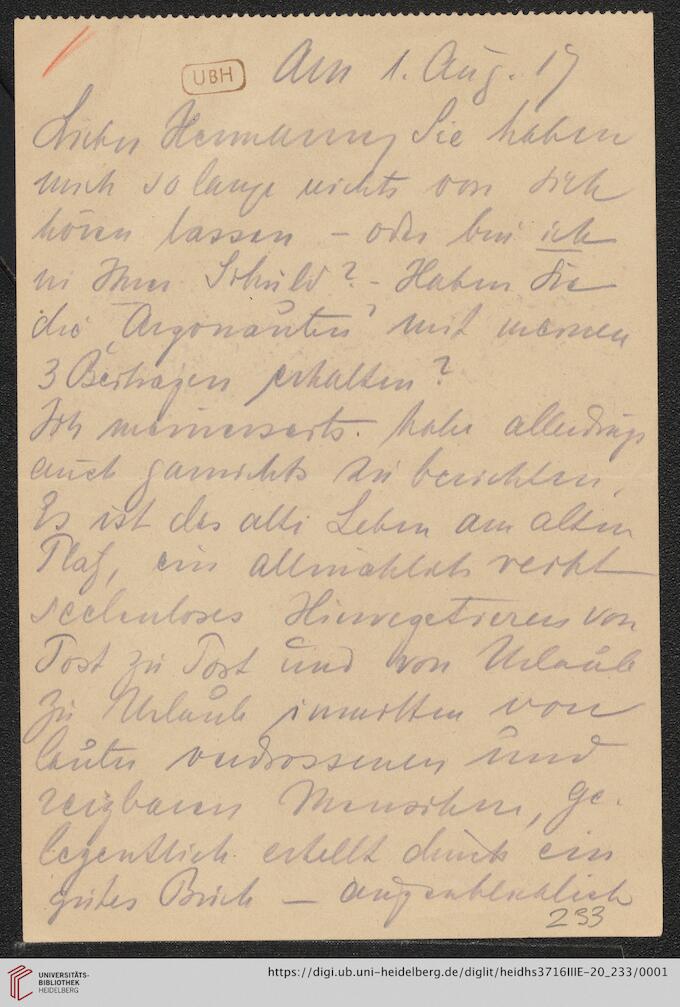 UBH
Am 1. Aug. 17
Lieber Hermann, Sie haben
mich so lange nichts von sich
hören lassen – oder bin ich
in Ihrer Schuld? – Haben Sie
die „Argonauten" mit meinen
3 Beiträgen erhalten?
Ich meinerseits habe allerdings
auch garnichts zu berichten,
Es ist das alte Leben am alten
Platz, ein allmählich recht
seelenloses Hinvegetieren von
Post zu Post und von Urlaub
zu Urlaub inmitten von
lauter verdrossenen und
reizbaren Menschen, ge-
legentlich erhellt durch ein
gutes Buch – augenblicklich
233
UNIVERSITÄTS-
BIBLIOTHEK
HEIDELBERG
https://digi.ub.uni-heidelberg.de/diglit/heidhs3716IIIE-20_233/0001